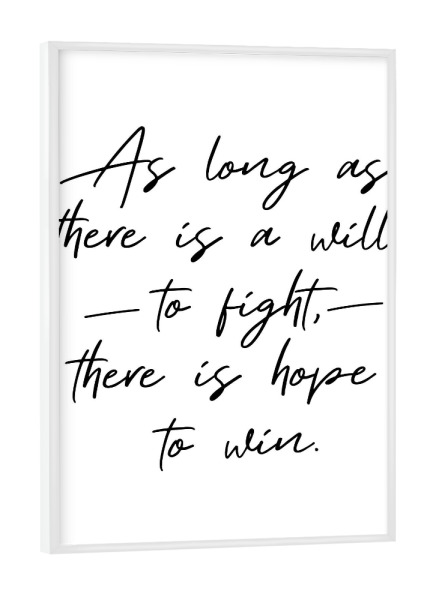 As long as
there is a will
— to fight, —
there is hope
to win.